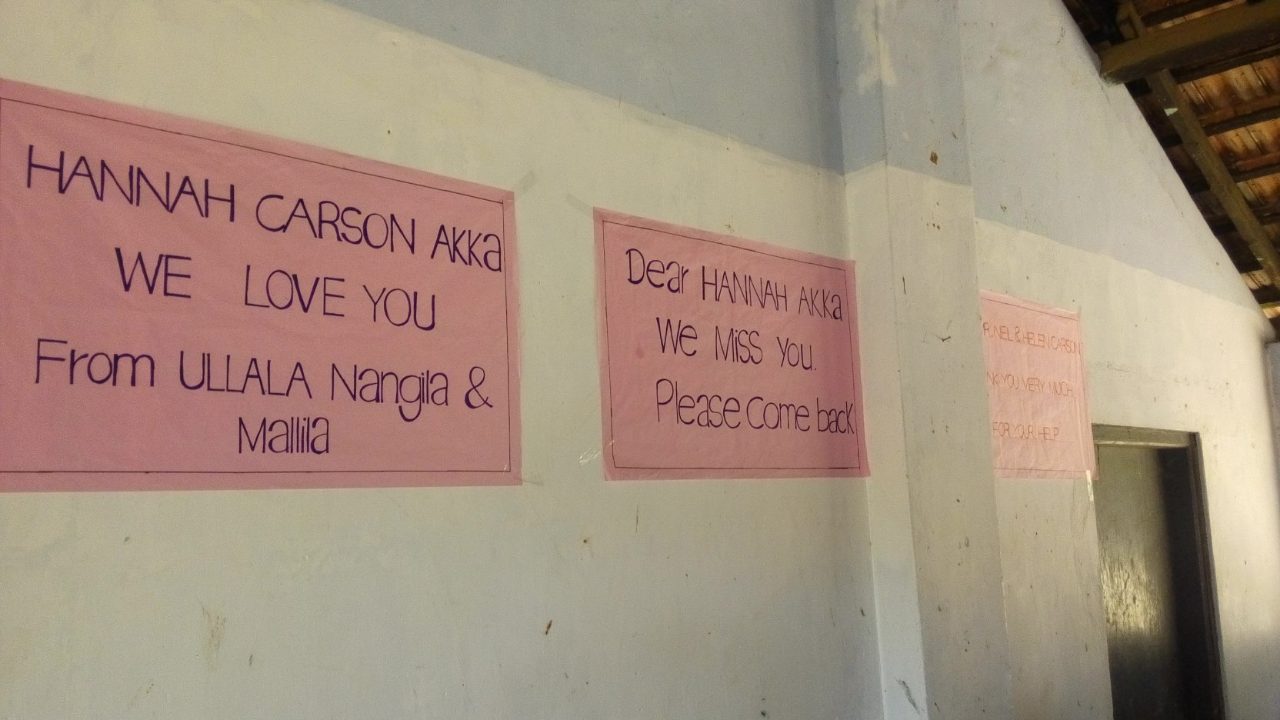 HANNAH CARSON AKKa
WE LOVE YOU
From ULLALA Nangila &
Mallila
Dear HANNAH AKKa
We Miss You.
Please Come back
NEL & HELEN CARSON
YOU VERY MUCH
FOR YOUR HELP